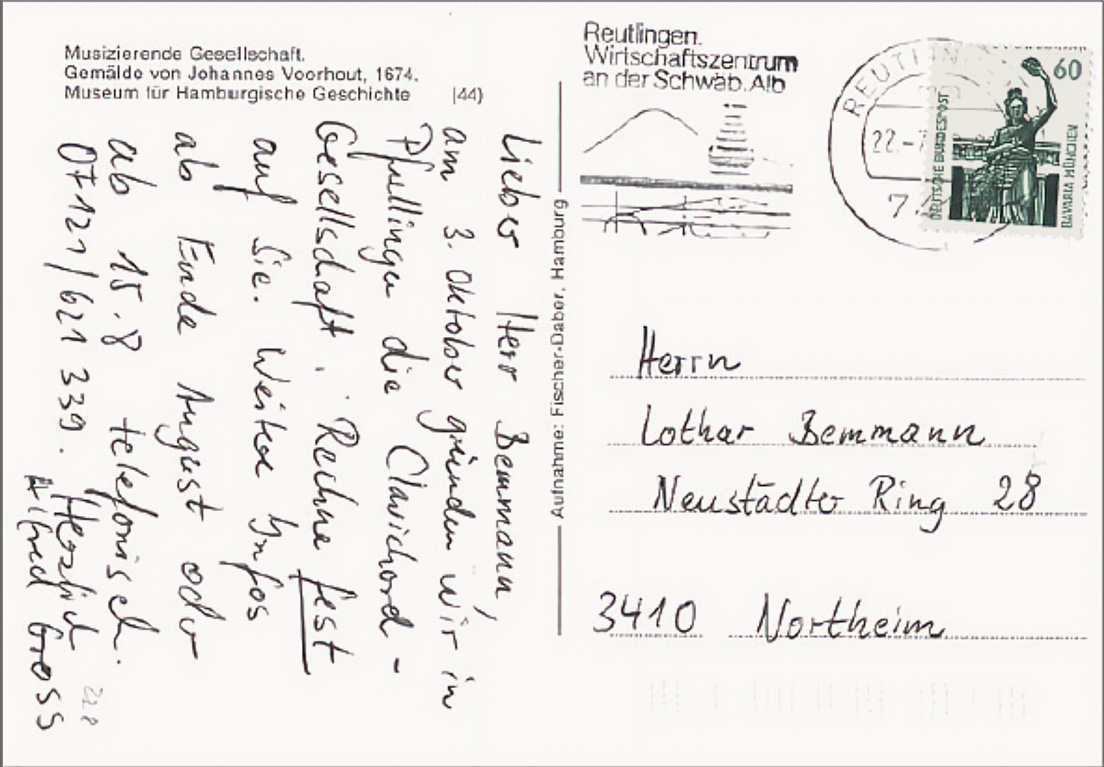 Musizierende Gesellschaft.
Gemälde von Johannes Voorhout, 1674.
Museum für Hamburgische Geschichte (44)
Lieber Herr Bemmann,
am 3. Oktober gründen wir in
Pfullingen die Clavichord-
Gesellschaft. Rechne fest
auf Sie. Weitere Infos
ab Ende August oder
ab 15.8 telefonisch.
07121/621 339. Herzlich
Alfred Gross
228
Aufnahme: Fischer-Daber, Hamburg
Reutlingen.
Wirtschaftszentrum
an der Schwäb. Alb
22.-
7
60
DEUTSCHE BUNDESPOST
BAVARIA MÜNCHEN
Herrn
Lothar Bemmann
Neustädter Ring 28
3410 Northeim